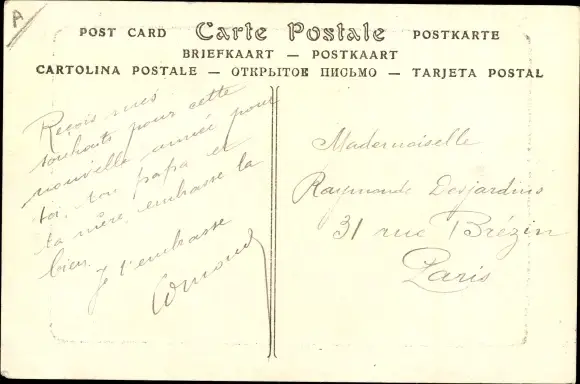 A
POST CARD Carte Postale POSTKARTE
BRIEFKAART — POSTKAART
CARTOLINA POSTALE — ОТКРЫТОЕ ПИСЬМО — TARJETA POSTAL
Reçois mes
souhaits pour cette
nouvelle année pour
toi, ton papa et
ta mère, embrasse la
bien
Je t'embrasse
Mademoiselle
Raymonde Desjardins
31 rue Brézin
Paris